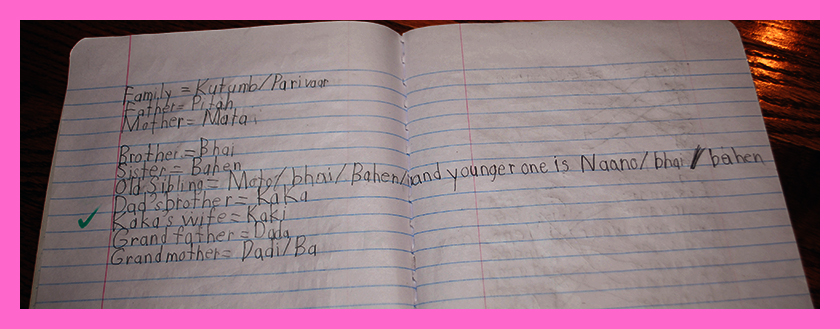 Family = Kutumb/Parivaar
Father = Pitah
Mother = Mata
Brother = Bhai
Sister = Bahen
Old Sibling = Moto/bhai/Bahen/and younger one is Naano/bhai/bahen
Dad's brother = KaKa
Kaka's wife = Kaki
Grand father = Dada
Grandmother = Dadi/Ba